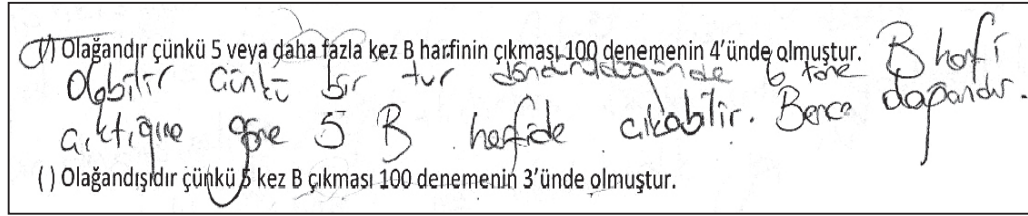 (/) Olağandır çünkü 5 veya daha fazla kez B harfinin çıkması 100 denemenin 4'ünde olmuştur. B harfi
Olabilir Çünkü bir tur döndürüldüğünde 6 tane
çıktığına göre 5 B harfide çıkabilir. Bence olağandır.
( ) Olağandışıdır çünkü 5 kez B çıkması 100 denemenin 3'ünde olmuştur.